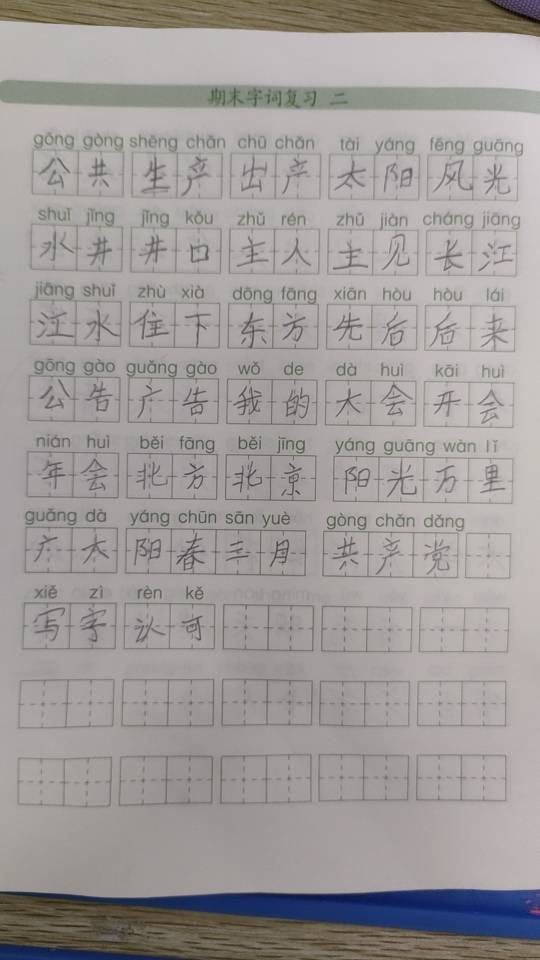 期末字词复习 二
gōng gòng shēng chǎn chū chǎn tài yáng fēng guāng
公共 生产 出产 太阳 风光
shuǐ jǐng jǐng kǒu zhǔ rén zhǔ jiàn cháng jiāng
水井 井口 主人 主见 长江
jiāng shuǐ zhù xià dōng fāng xiān hòu hòu lái
江水 住下 东方 先后 后来
gōng gào guǎng gào wǒ de dà huì kāi huì
公告 广告 我的 大会 开会
nián huì běi fāng běi jīng yáng guāng wàn lǐ
年会 北方 北京 阳光万里
guǎng dà yáng chūn sān yuè gòng chǎn dǎng
广大 阳春三月 共产党
xiě zì rèn kě
写字 认可